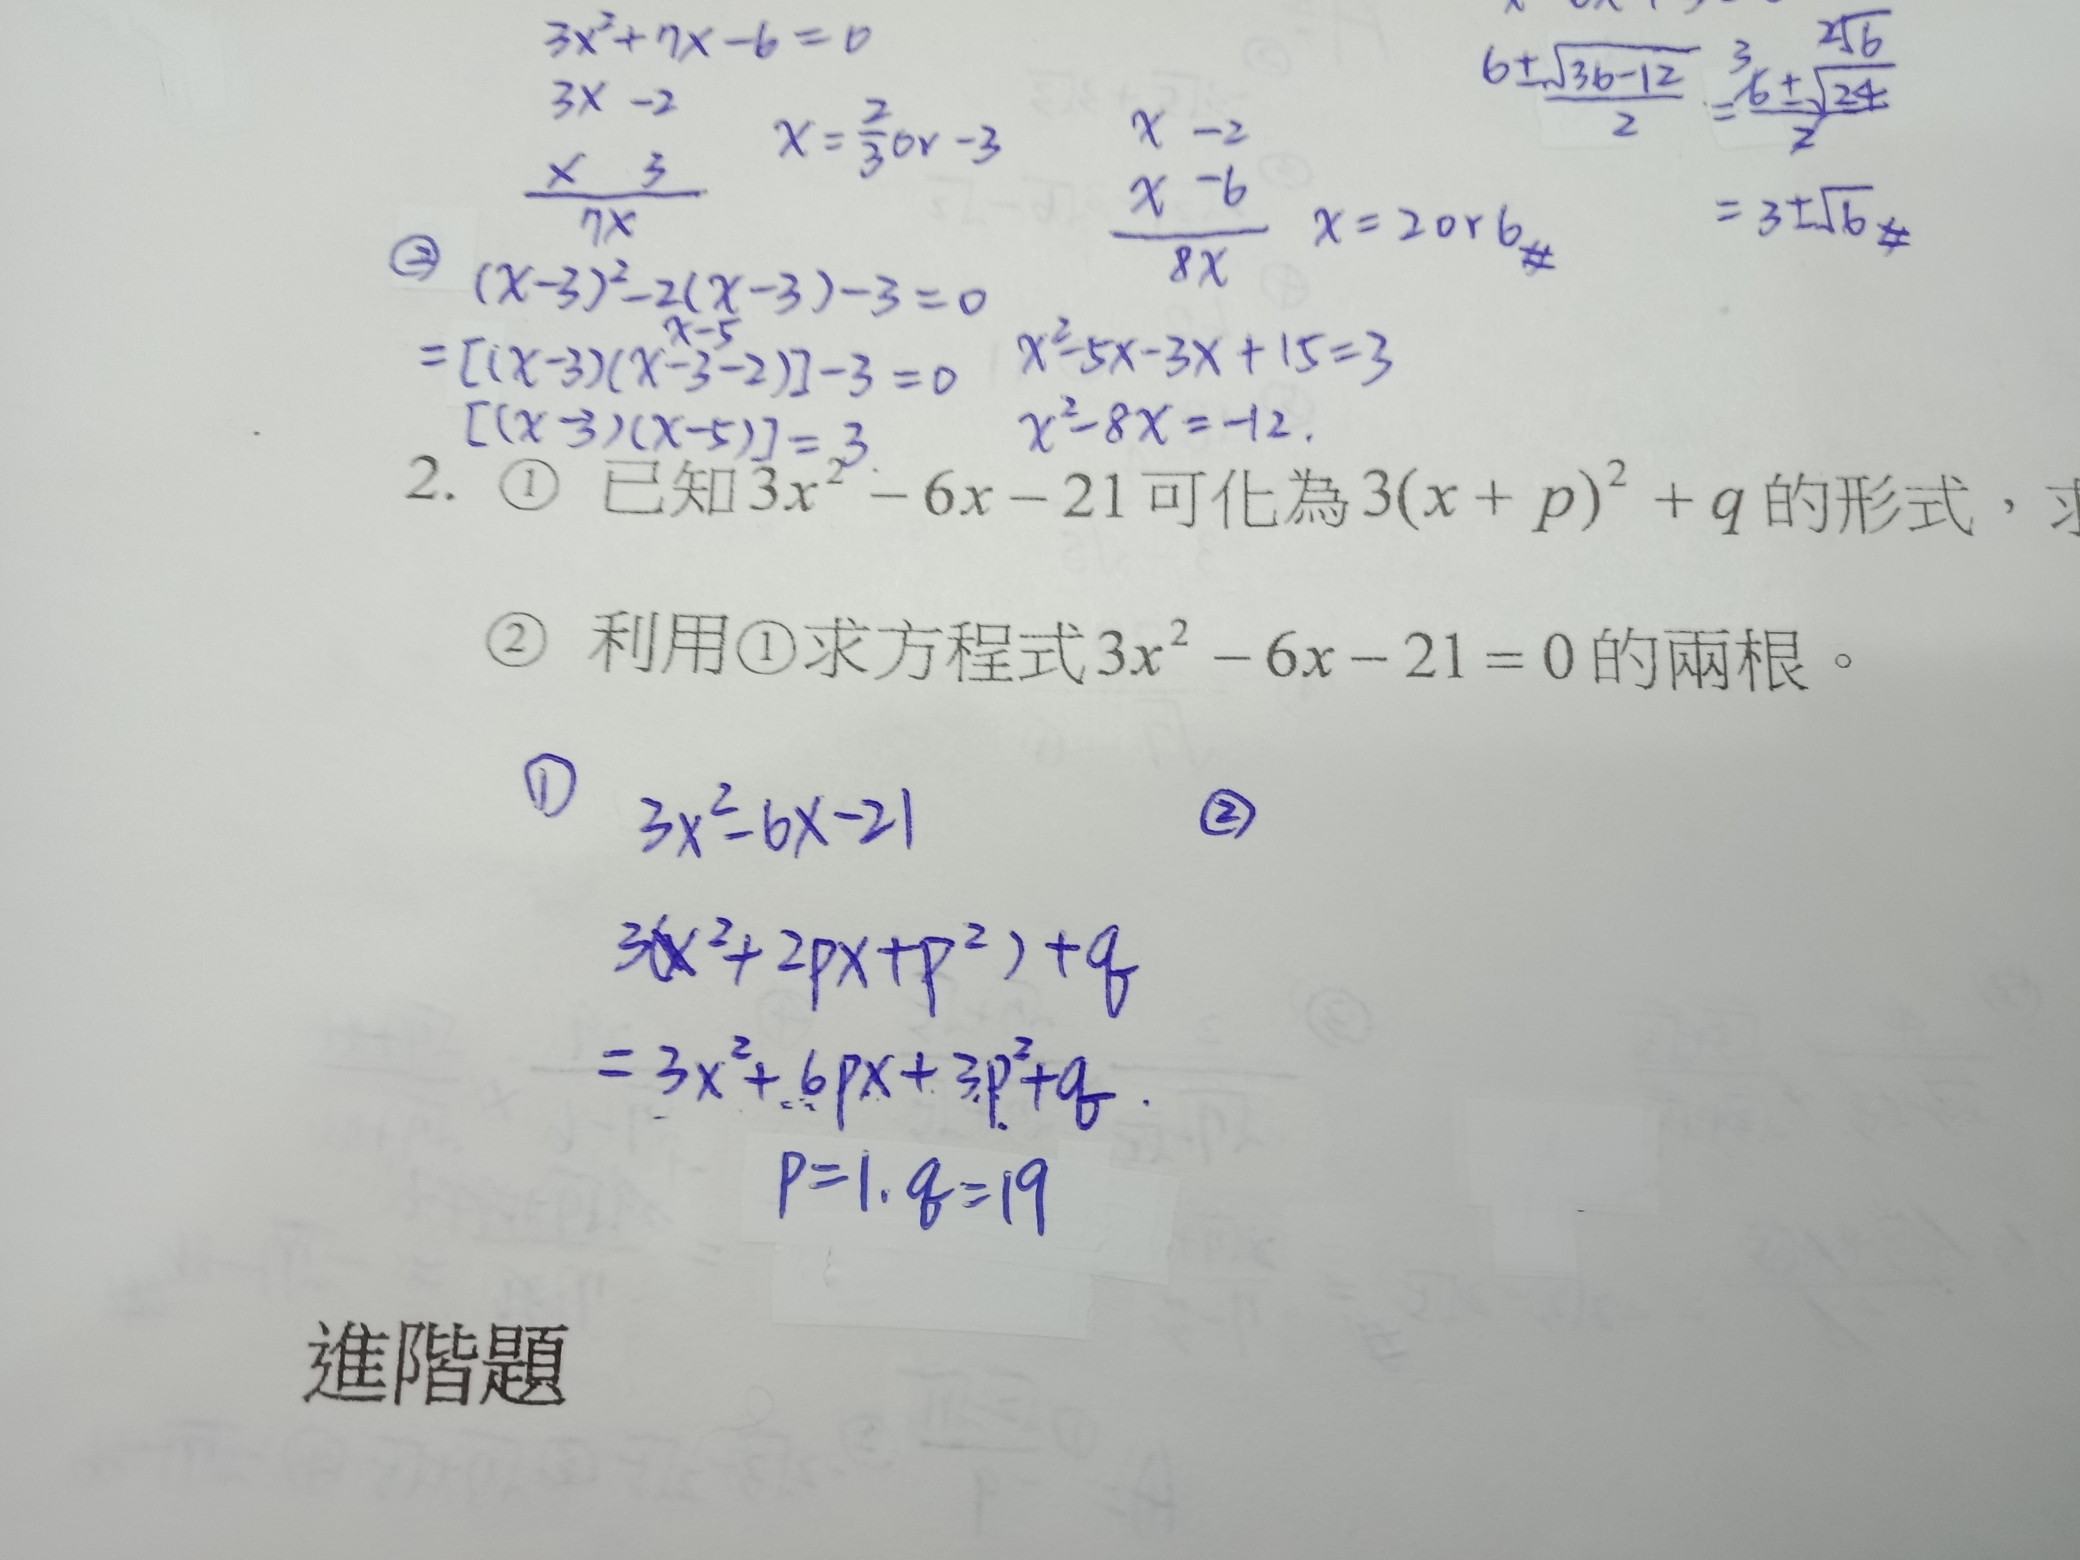 3x²+7x-6=0
3x -2
x 3
7x
x=2/3 or -3
x -2
x -6
8x
x=2 or 6#
6±√36-12/2 = 6±√24/2 3 2√6
=3±√6#
② (x-3)²-2(x-3)-3=0
x-5
=[(x-3)(x-3-2)]-3=0
[(x-3)(x-5)]=3
x²-5x-3x+15=3
x²-8x=-12.
2. ① 已知3x²-6x-21可化為3(x+p)²+q的形式,求
② 利用①求方程式3x²-6x-21=0的兩根。
① 3x²-6x-21
3(x²+2px+p²)+q
=3x²+6px+3p²+q.
p=1. q=19
②
進階題